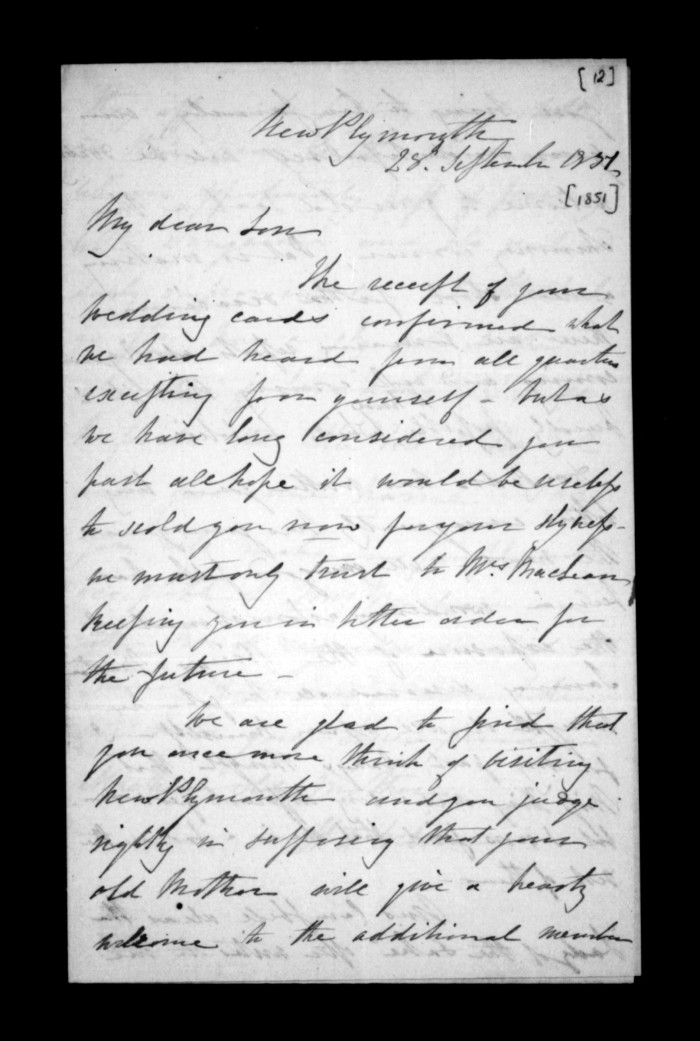 [12]
New Plymouth
28th September 1851,
[1851]
My dear Son
The receipt of your
wedding cards confirmed what
we had heard from all quarters
excepting from yourself - but as
we have long considered you
past all hope it would be useless
to scold you now for your slyness -
we must only trust to Mrs MacLean
keeping you in better order for
the future -
We are glad to find that
you once more think of visiting
New Plymouth and you judge
rightly in supposing that your
old Mother will give a hearty
welcome to the additional member